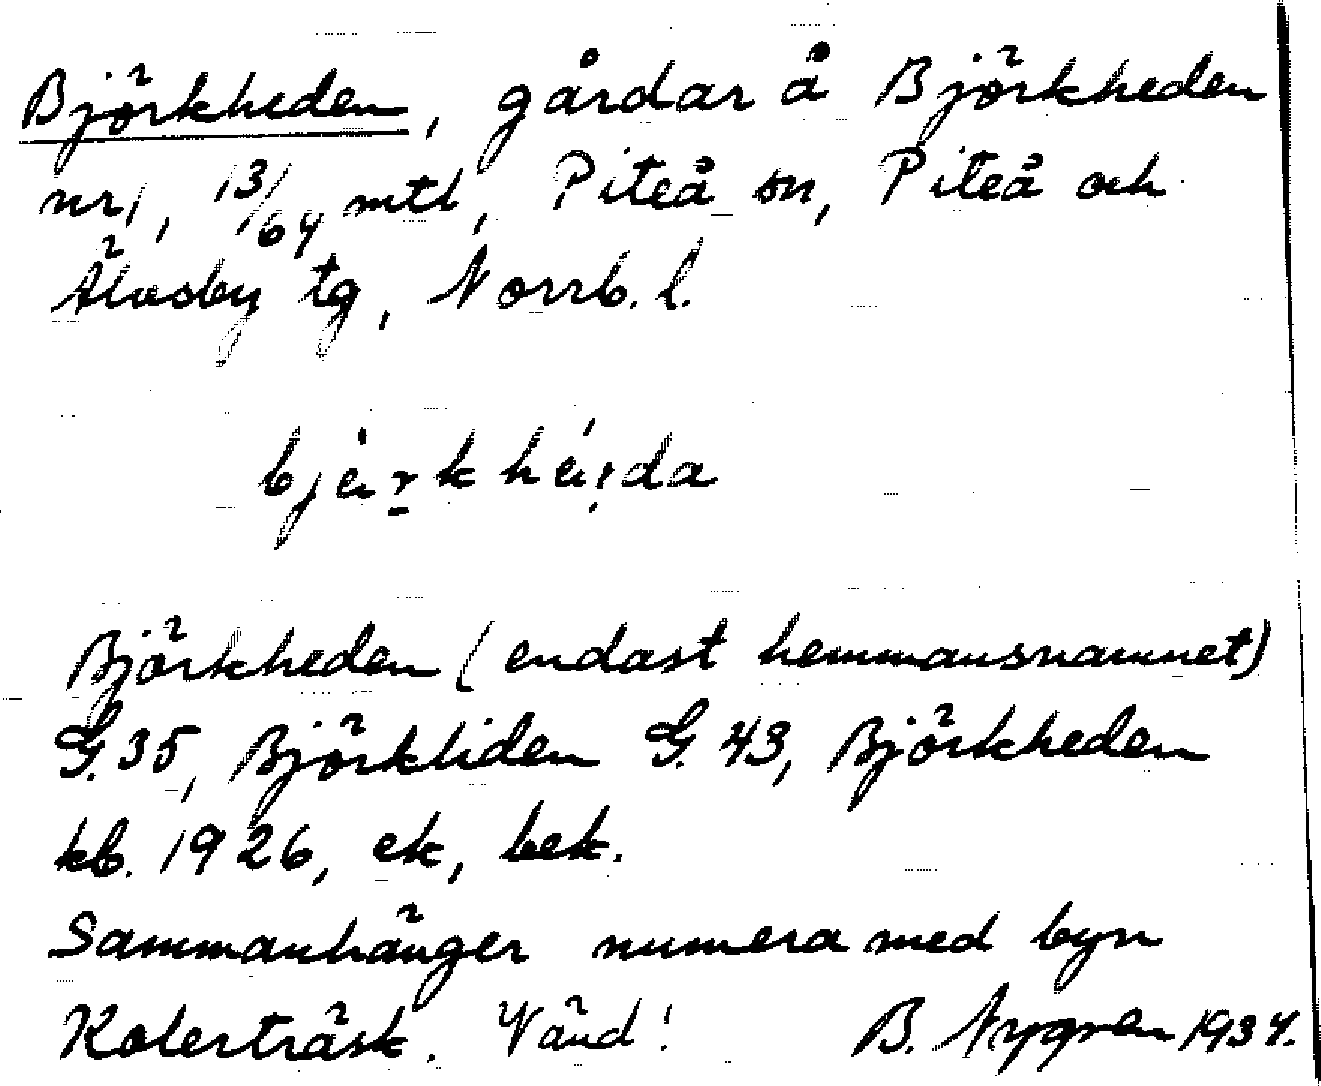 Björkheden, gårdar å Björkheden
nr 1, 13/64 mtl, Piteå sn, Piteå och
Älvsby tg, Norrb. l.
Björkheden (endast hemmansnamnet)
G. 35, Björkliden G. 43, Björkheden
kb. 1926, ek, bek.
Sammanhänger numera med byn
Kolerträsk. Vänd! B. Nygren 1934.